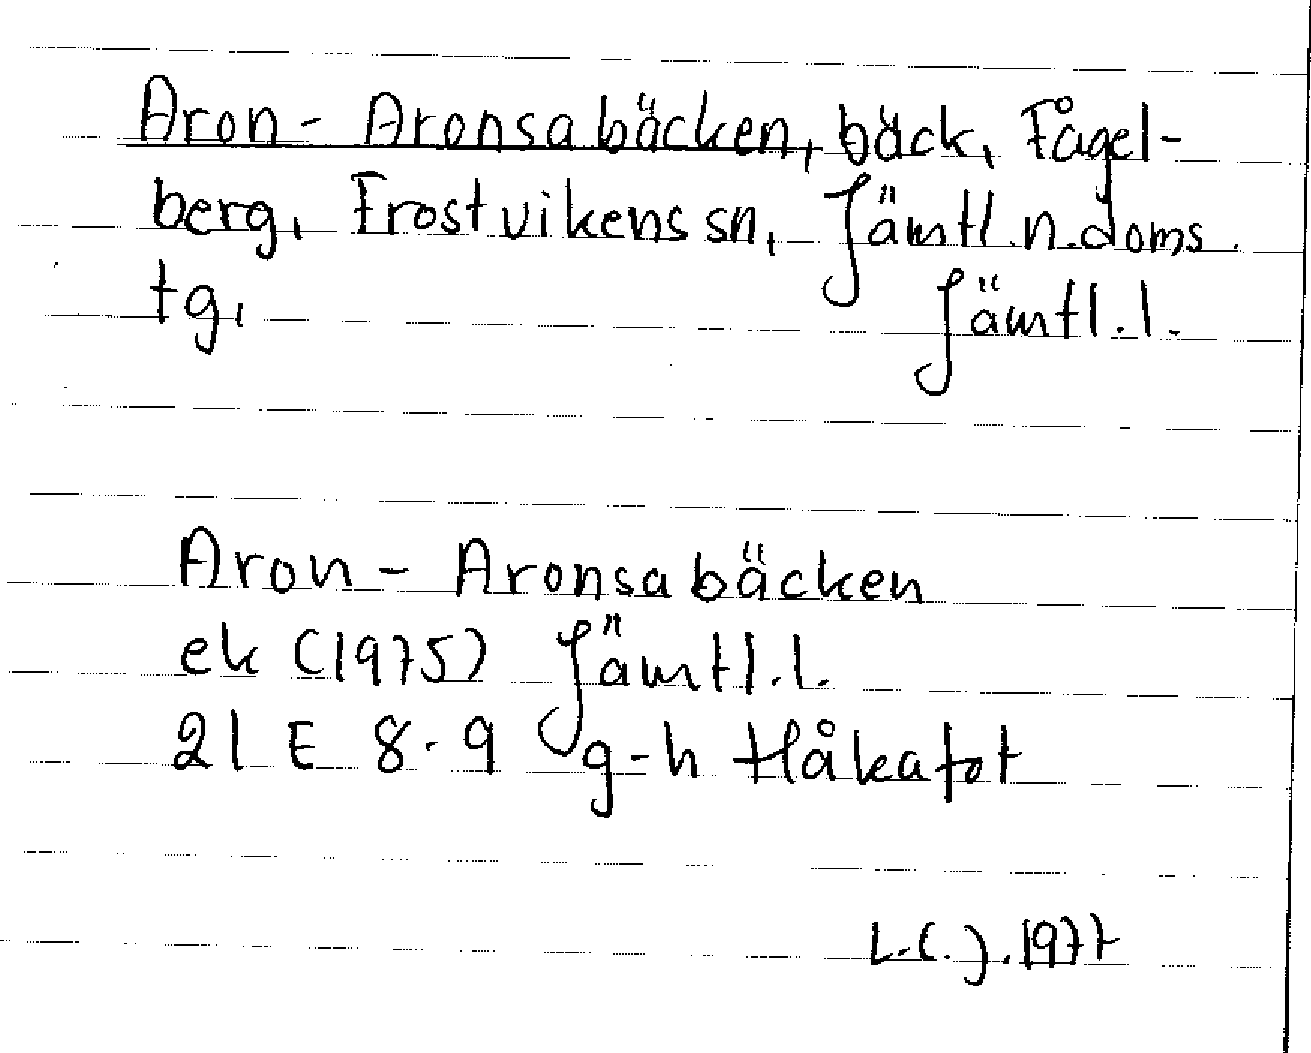 Aron-Aronsabäcken, bäck, Fågel-
berg, Frostvikens sn, Jämtl.n.doms.
tg, Jämtl.l.
Aron-Aronsabäcken
ek (1975) Jämtl.l.
21 E 8-9 g-h Håkafot
L.C.J. 1977